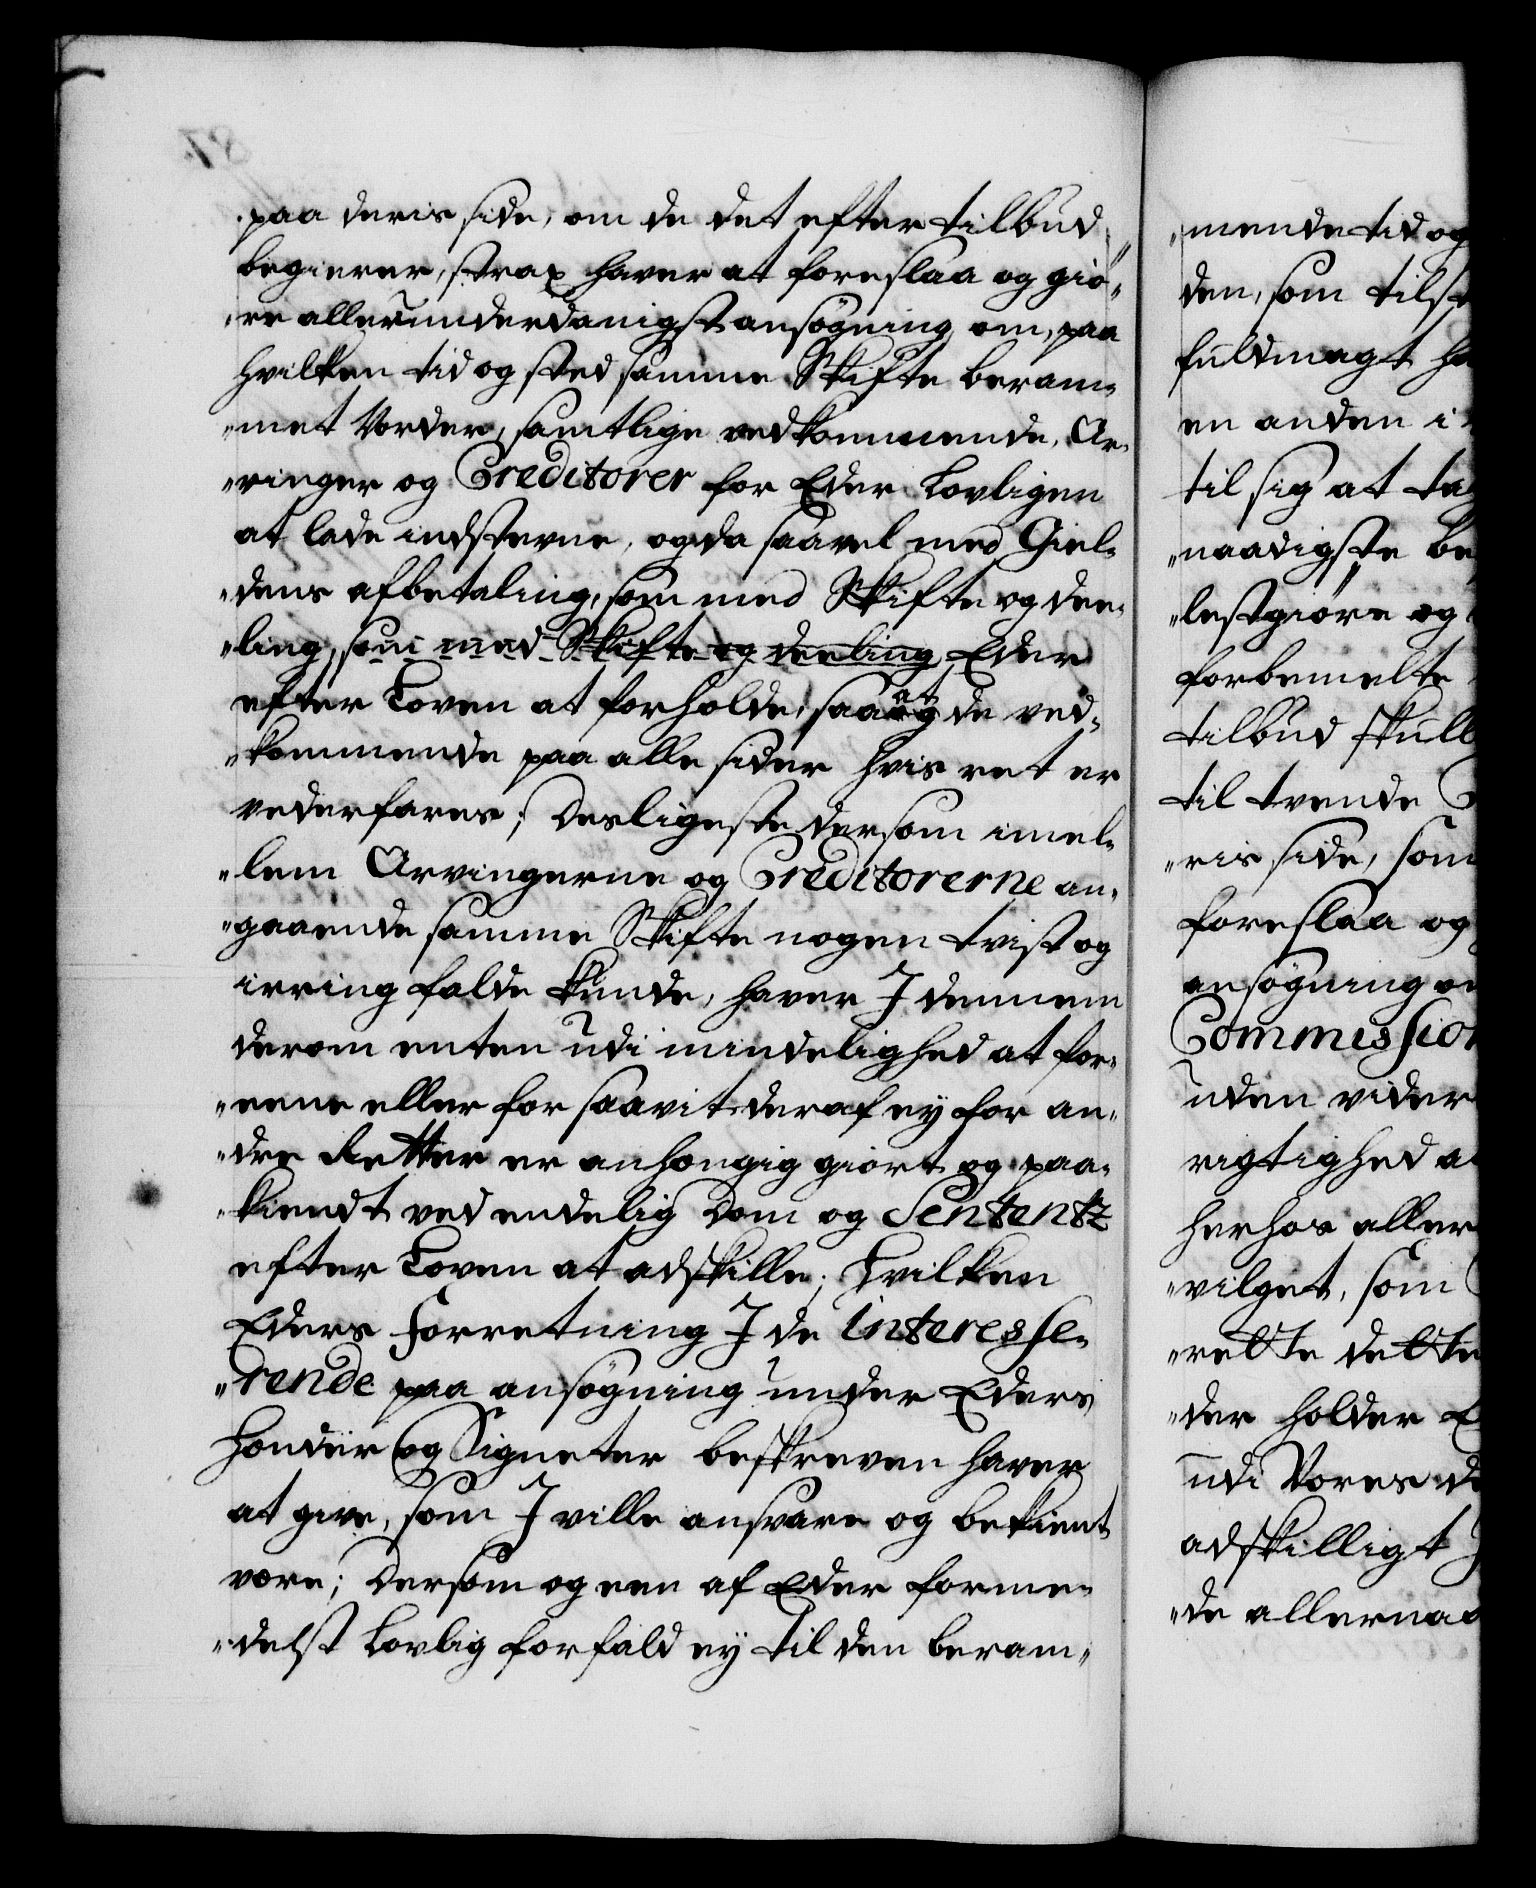 paa deris side, om de det efter tilbud
begierer, strax haver at foreslaa og giö„
„re allerunderdanigst ansøgning om, paa
hvilken tid og sted samme Skifte beram„
„met Vorder, samtlige vedkommende, Ar„
„vinger og Creditorer for Eder Lovligen
at lade indstevne, og da saavel med Giel„
„dens afbetaling, som med Skifte og dee„
„ling, som med Skifte og deeling, Eder
efter Loven at forholde, saa at de ved„
„kommende paa alle sider hvis ret er
vederfares; Desligeste dersom imel„
„lem Arvingerne og Creditorerne an„
„gaaende samme Skifte nogen tvist og
irring falde kunde, haver I dennem
derom enten udi mindelighed at for„
„eene eller for saavit deraf ey for an„
„dre Retter er anhængig giort og paa„
„kiendt ved endelig Dom og Sententz
efter Loven at adskille; Hvilken
Eders Forretning I de Interesse„
„rende paa ansøgning under Eders
Hænder og Signeter beskreven haver
at give, som I ville ansvare og bekient
være; Dersom og een af Eder forme„
„delst Lovlig forfald ey til den beram„
„mende tid og
den, som tilst
fuldmagt ha
en anden i
til sig at tag
„naadigste be
„lestgiøre og
forbemelte
tilbud skull
til tvende
„ris side, som
foreslaa og
ansøgning om
Commission
uden vider
rigtighed a
herhos aller
„vilget, som
„rette dette
„der holder E
udi Vores d
adskilligt
„de allernaa